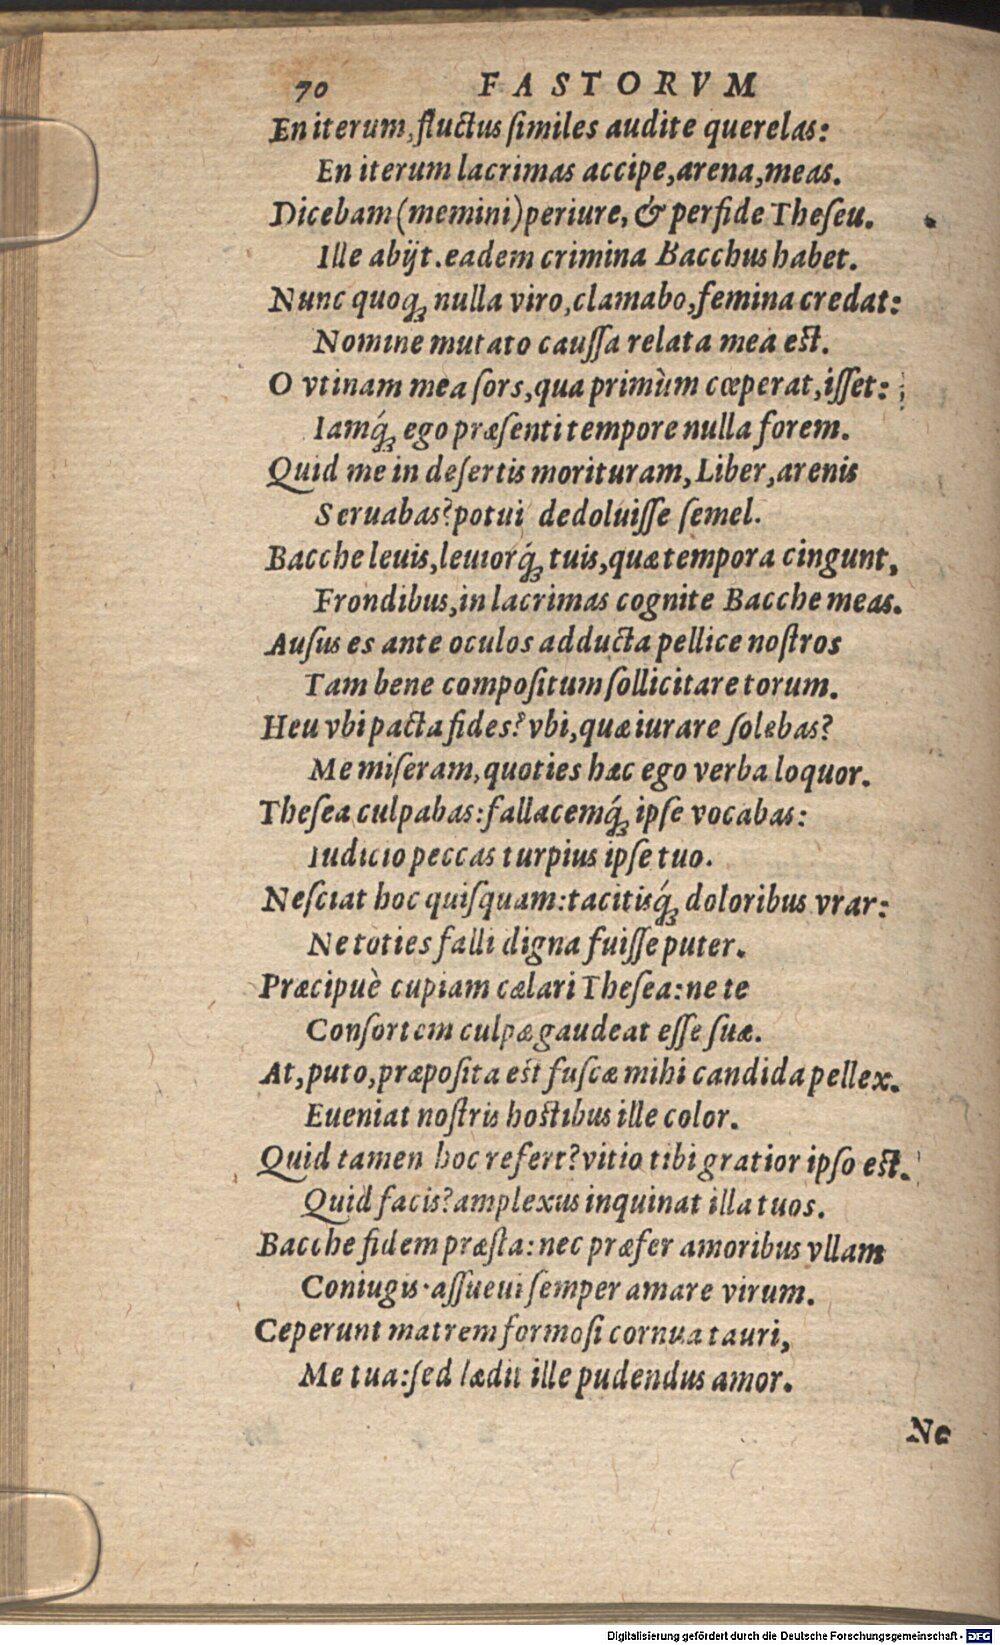 70 FASTORVM
En iterum, fluctus ſimiles audite querelas:
En iterum lacrimas accipe, arena, meas.
Dicebam (memini) periure, & perfide Theſeu.
Ille abijt. eadem crimina Bacchus habet.
Nunc quoq; nulla viro, clamabo, femina credat:
Nomine mutato cauſſa relata mea eſt.
O vtinam mea ſors, qua primùm cœperat, iſſet:
Iamq́; ego præſenti tempore nulla forem.
Quid me in deſertis morituram, Liber, arenis
Seruabas? potui dedoluiſſe ſemel.
Bacche leuis, leuiorq́; tuis, quæ tempora cingunt,
Frondibus, in lacrimas cognite Bacche meas.
Auſus es ante oculos adducta pellice noſtros
Tam bene compoſitum ſollicitare torum.
Heu vbi pacta fides? vbi, quæ iurare ſolebas?
Me miſeram, quoties hæc ego verba loquor.
Theſea culpabas: fallacemq́; ipſe vocabas:
Iudicio peccas turpius ipſe tuo.
Neſciat hoc quiſquam: tacitisq́; doloribus vrar:
Ne toties falli digna fuiſſe puter.
Præcipuè cupiam cælari Theſea: ne te
Conſortem culpæ gaudeat eſſe ſuæ.
At, puto, præpoſita eſt fuſcæ mihi candida pellex.
Eueniat noſtris hoſtibus ille color.
Quid tamen hoc refert? vitio tibi gratior ipſo eſt.
Quid facis? amplexus inquinat illa tuos.
Bacche fidem præſta: nec præfer amoribus vllam
Coniugis. aſſueui ſemper amare virum.
Ceperunt matrem formoſi cornua tauri,
Me tua: ſed lædit ille pudendus amor.
Ne
Digitalisierung gefördert durch die Deutsche Forschungsgemeinschaft - DFG